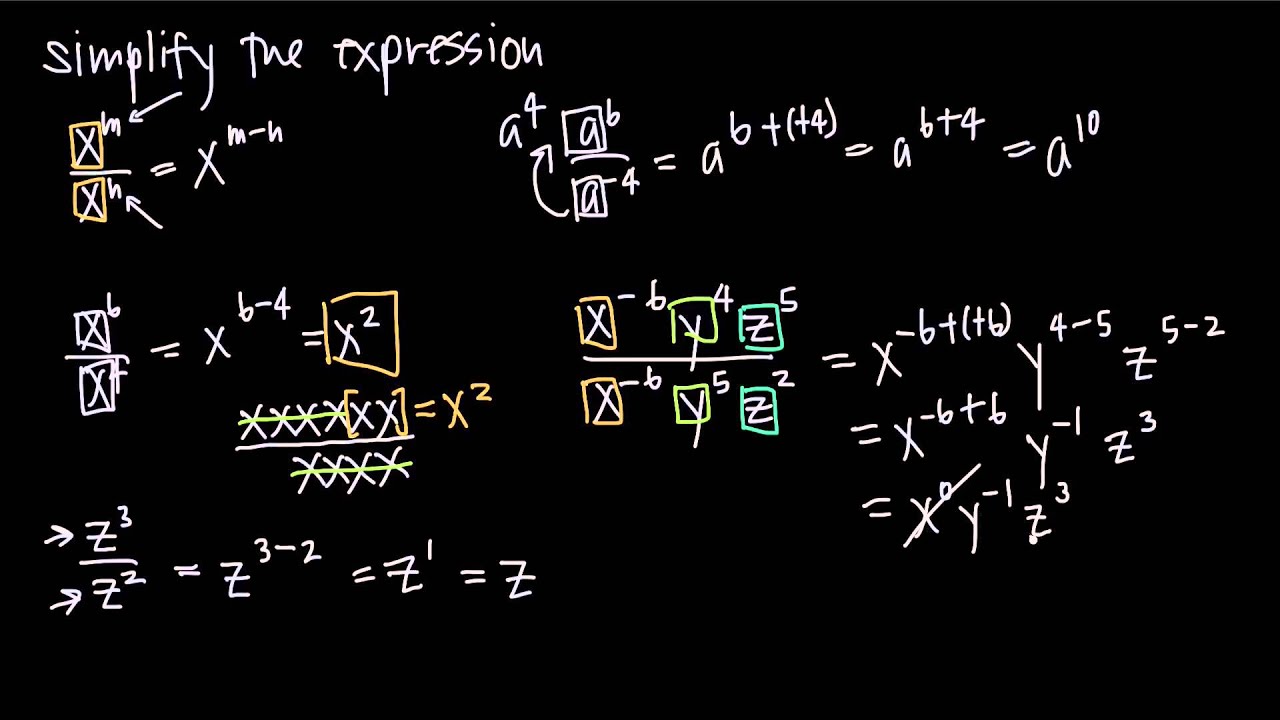 simplify the expression
x^m / x^n = x^(m-n)
a^4 a^6 / a^-4 = a^(6+(+4)) = a^(6+4) = a^10
x^6 / x^4 = x^(6-4) = x^2
xxxxxx / xxxx = x^2
x^-6 y^4 z^5 / x^-6 y^5 z^2 = x^(-6+(+6)) y^(4-5) z^(5-2)
= x^(-6+6) y^-1 z^3
= x^0 y^-1 z^3
→ z^3 / → z^2 = z^(3-2) = z^1 = z